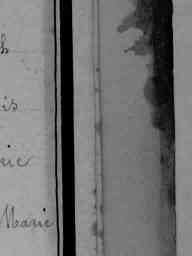 h
is
rie
Marie